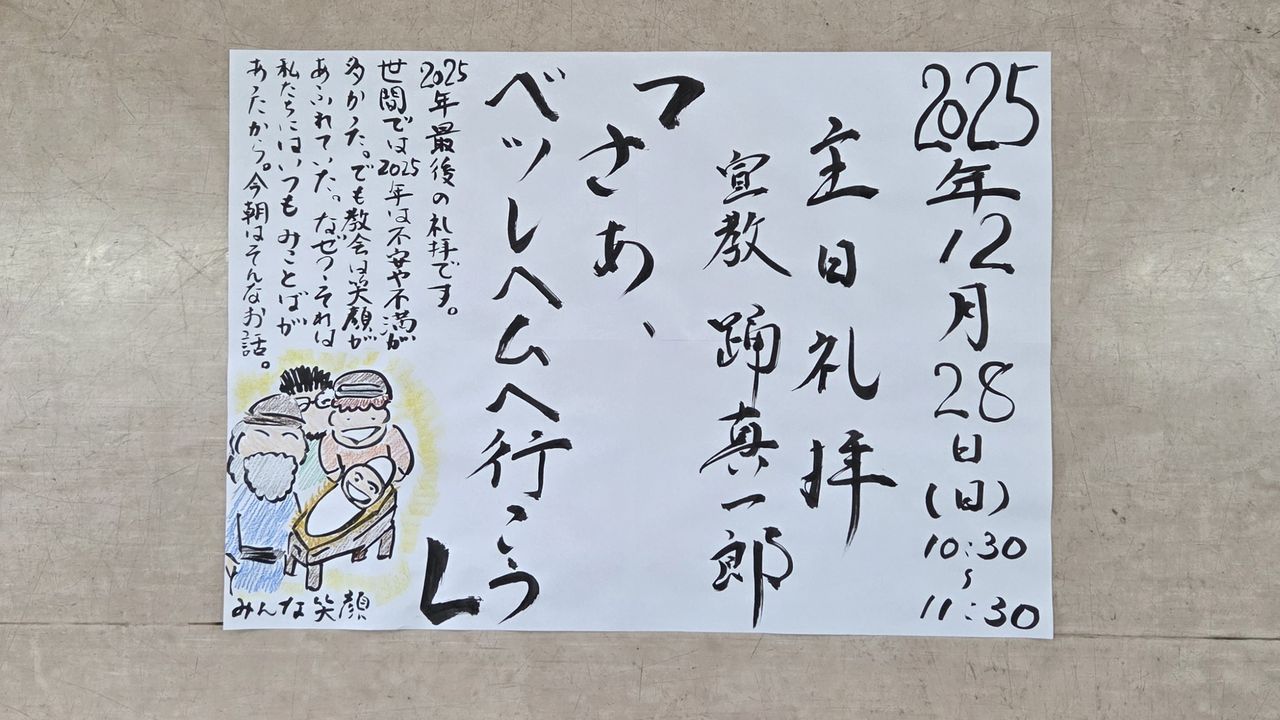 2025年12月28日(日)10:30~11:30
主日礼拝
宣教 踊真一郎
「さあ、
ベツレヘムへ行こう」
2025年最後の礼拝です。
世間では2025年は不安や不満が
多かった。でも教会は笑顔が
あふれていた。なぜ?それは
私たちにはいつもみことばが
あったから。今朝はそんなお話。
みんな笑顔